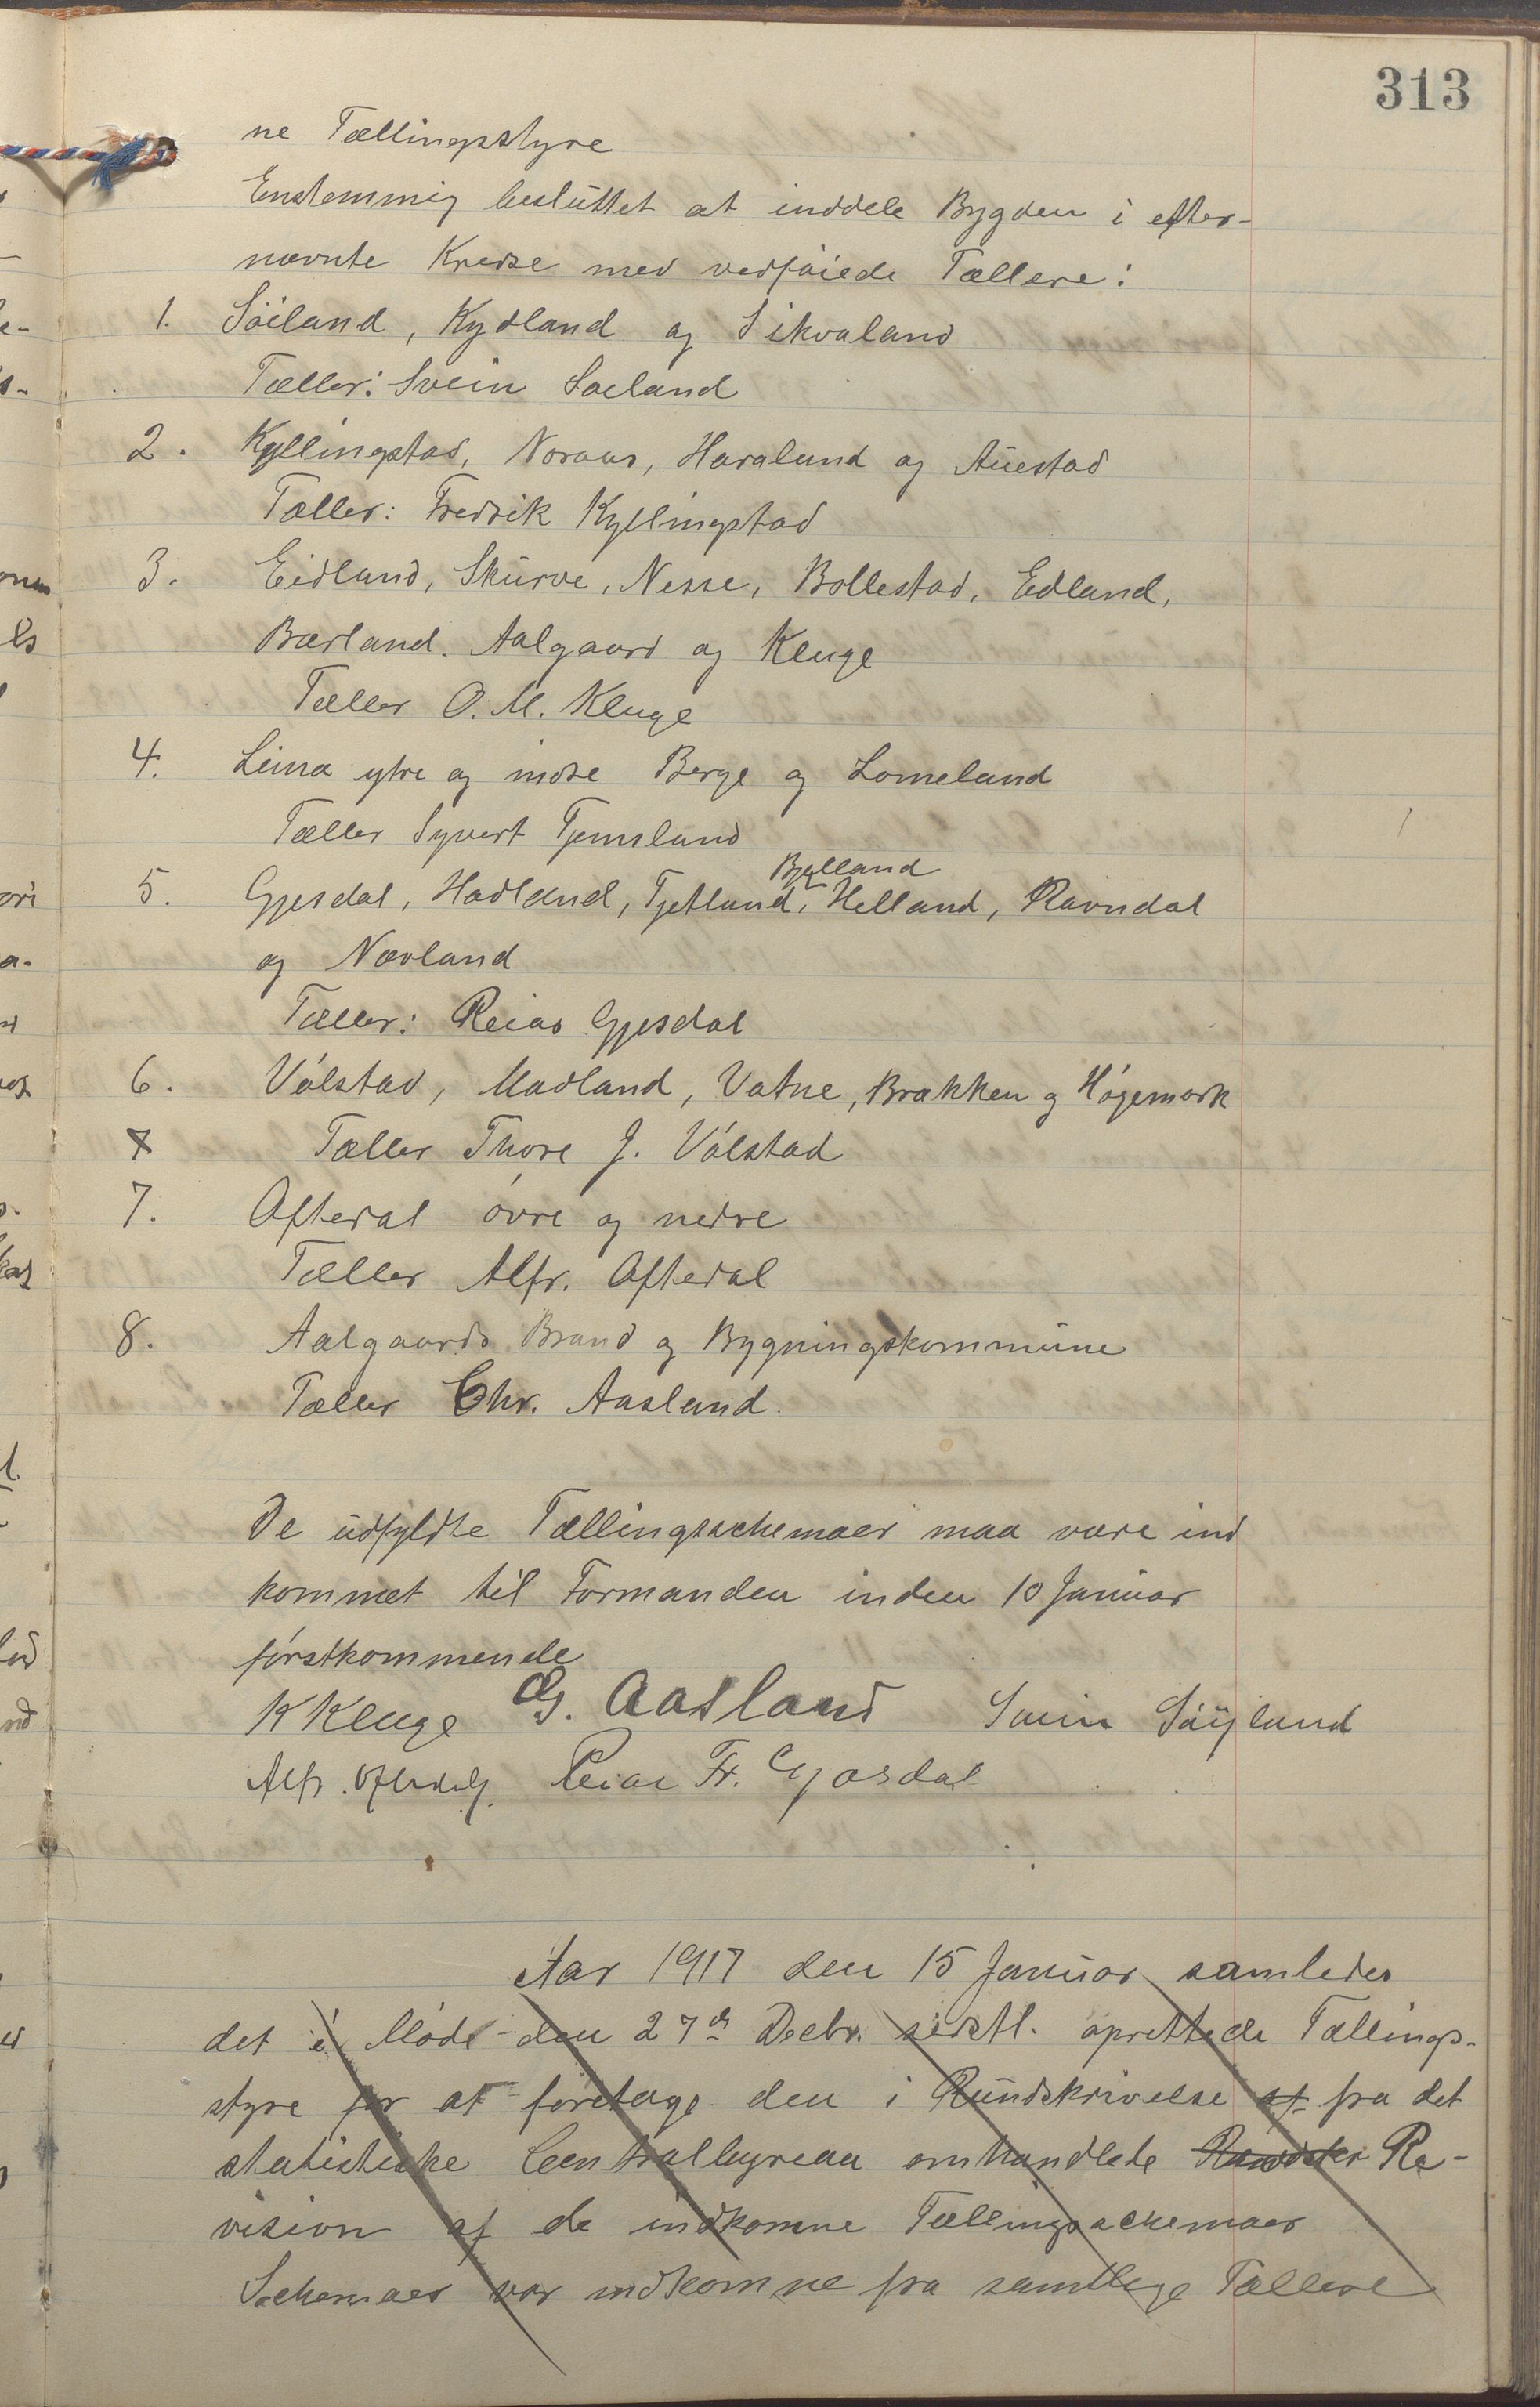 313
ne Tællingsstyre
Enstemmig besluttet at inddele Bygden i efter-
nævnte Kredse med vedføiede Tællere:
1. Söiland, Kydland og Sikvaland
Tæller: Svein Soeland
2. Kyllingstad, Noraas, Haraland og Auestad
Tæller: Fredrik Kyllingstad
3. Eidland, Skurve, Nesse, Bollestad, Edland,
Bærland. Aalgaard og Kluge
Tæller O. M. Kluge
4. Lima ytre og indre Berge og Lomeland
Tæller Syvert Tjemsland
Bjelland
5. Gjesdal, Hadland, Tjetland, Helland, Ravndal
og Nævland
Tæller: Reias Gjesdal
6. Vølstad, Madland, Vatne, Brækken og Høgemork
7 Tæller Thore J. Vølstad
7. Oftedal øvre og nedre
Tæller Alfr. Oftedal
8. Aalgaards Brand og Bygningskommune
Tæller Chr. Aasland.
De udfyldte Tællingsschemaer maa være ind
kommet til Formanden inden 10 Januar
førstkommende
K Kluge G. Aasland Svein Söyland
Alfr. Oftedal. Reiar Fr. Gjesdal
Aar 1917 den 15 Januar samledes
det i Møde den 27de Decbr. sidstl. oprettede Tællings-
styre for at foretage den i Rundskrivelse af fra det
statistiske Centralbyreau omhandlede Re-
vision af de indkomne Tællingsschemaer
Schemaer var indkomne fra samtlige Tællere